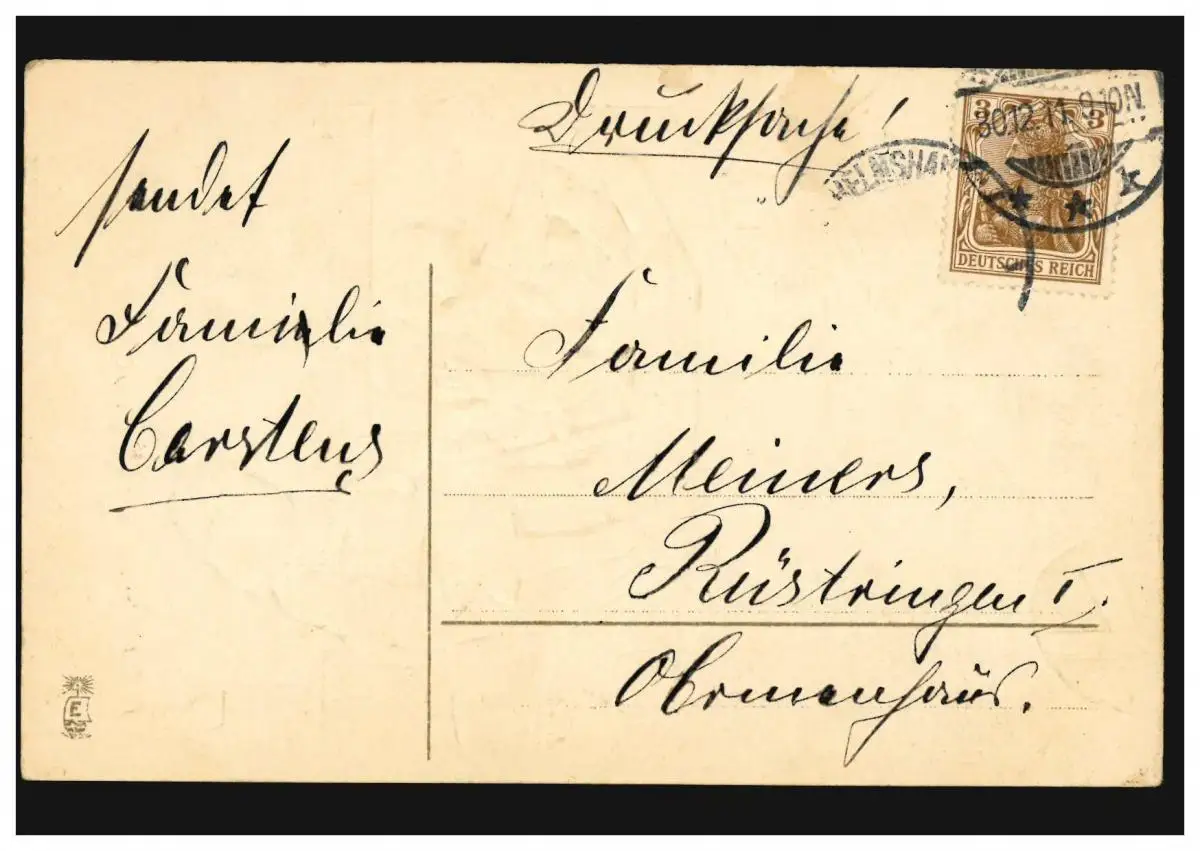 Drucksache!
3 3
DEUTSCHES REICH
30.12.11. 9.10N.
sendet
Familie
Carstens
Familie
Meiners,
Rüstringen I.
E